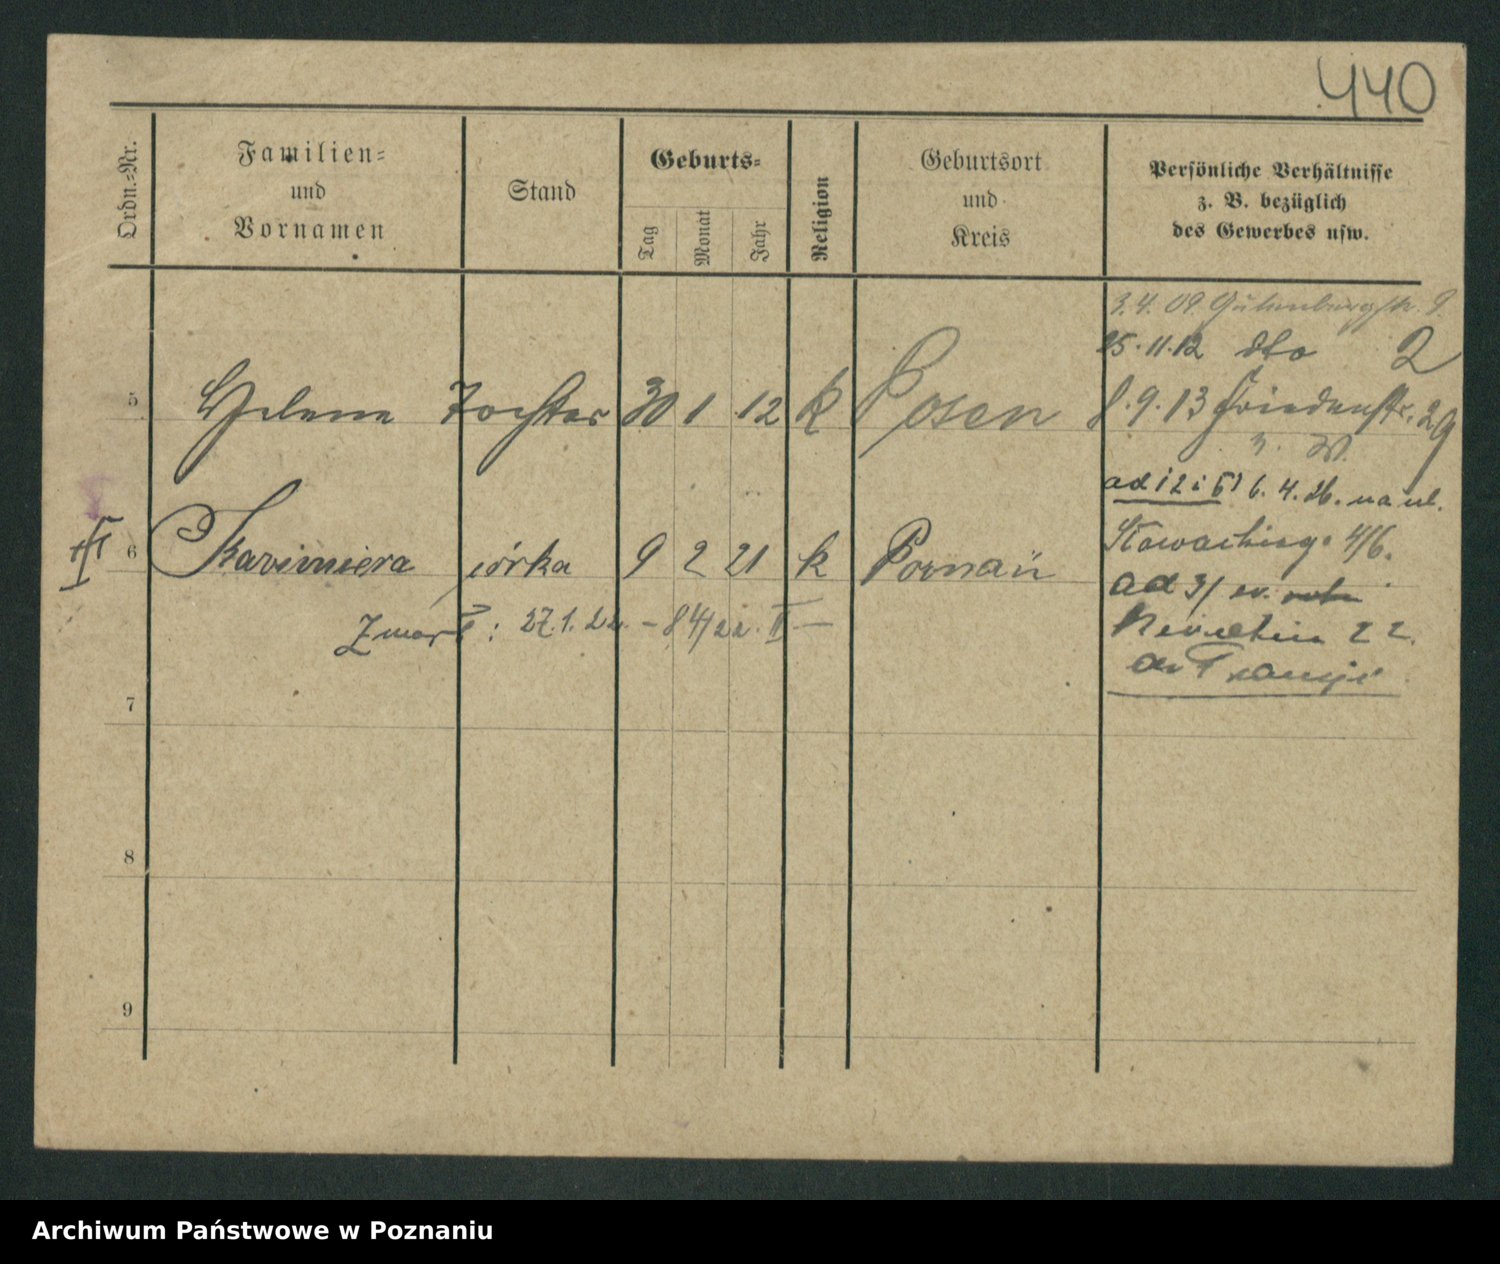 440
Ordn.-Nr.
Familien-
und
Vornamen
Stand
Geburts-
Tag
Monat
Jahr
Religion
Geburtsort
und
Kreis
Persönliche Verhältnisse
z. B. bezüglich
des Gewerbes usw.
3.4.09 Gutenbergstr. 9
25.11.12 dto 2
5 Helene Tochter 30 1 12 k Posen 8.9.13 Friedenstr. 29
ad 1 2 i 5) 6.4.26. na ul.
6 Kazimiera córka 9 2 21 k Poznań
4/6.
ad 3/
Zmarł: 27.1.22. - 84/22. II -
22.
do Francji
7
8
9
Archiwum Państwowe w Poznaniu